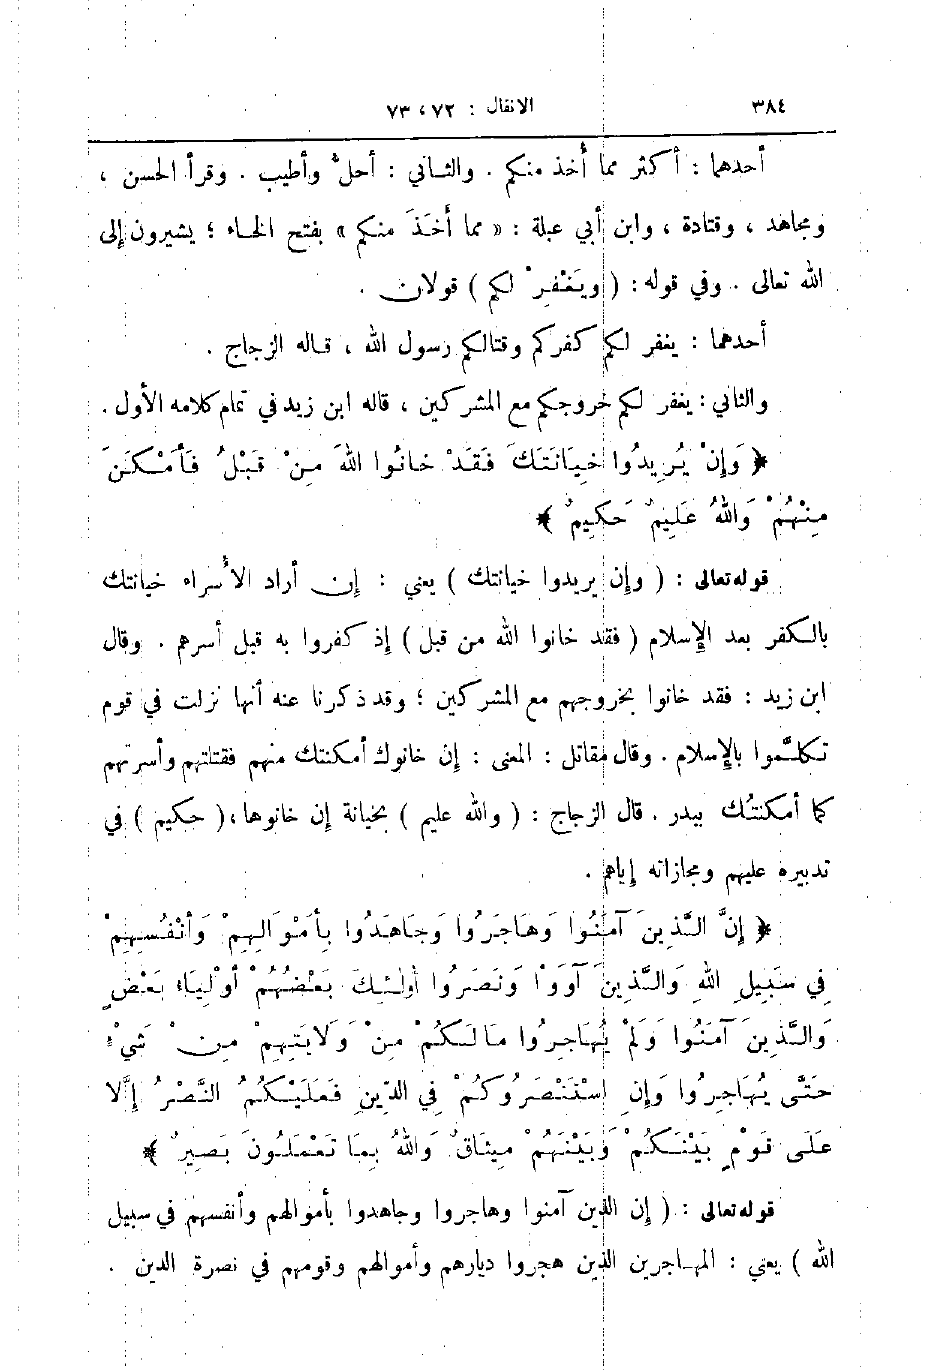 ٣٨٤ الانفال : ٧٢ ، ٧٣
أحدهما : أكثر مما أُخذ منكم . والثاني : أحلّ وأطيب . وقرأ الحسن ،
ومجاهد ، وقتادة ، وابن أبي عبلة : « مما أَخَذَ منكم » بفتح الخاء ؛ يشيرون إلى
الله تعالى . وفي قوله : ( ويَغْفِرْ لكم ) قولان .
أحدهما : يغفر لكم كفركم وقتالكم رسول الله ، قاله الزجاج .
والثاني : يغفر لكم خروجكم مع المشركين ، قاله ابن زيد في تمام كلامه الأول .
﴿ وَإِنْ يُرِيدُوا خِيَانَتَكَ فَقَدْ خَانُوا اللهَ مِنْ قَبْلُ فَأَمْكَنَ
مِنْهُمْ وَاللهُ عَلِيمٌ حَكِيمٌ ﴾
قوله تعالى : ( وإن يريدوا خيانتك ) يعني : إن أراد الأُسراء خيانتك
بالكفر بعد الإسلام ( فقد خانوا الله من قبل ) إذ كفروا به قبل أسرهم . وقال
ابن زيد : فقد خانوا بخروجهم مع المشركين ؛ وقد ذكرنا عنه أنها نزلت في قوم
تكلَّموا بالإسلام . وقال مقاتل : المعنى : إن خانوك أمكنتك منهم فقتلتهم وأسرتهم
كما أمكنتُك ببدر . قال الزجاج : ( والله عليم ) بخيانة إن خانوها ، ( حكيم ) في
تدبيره عليهم ومجازاته إياهم .
﴿ إِنَّ الَّذِينَ آمَنُوا وَهَاجَرُوا وَجَاهَدُوا بِأَمْوَالِهِمْ وَأَنْفُسِهِمْ
فِي سَبِيلِ اللهِ وَالَّذِينَ آوَوْا وَنَصَرُوا أُولٰئِكَ بَعْضُهُمْ أَوْلِيَاءُ بَعْضٍ
وَالَّذِينَ آمَنُوا وَلَمْ يُهَاجِرُوا مَا لَكُمْ مِنْ وَلَايَتِهِمْ مِنْ شَيْءٍ
حَتَّى يُهَاجِرُوا وَإِنِ اسْتَنْصَرُوكُمْ فِي الدِّينِ فَعَلَيْكُمُ النَّصْرُ إِلَّا
عَلَى قَوْمٍ بَيْنَكُمْ وَبَيْنَهُمْ مِيثَاقٌ وَاللهُ بِمَا تَعْمَلُونَ بَصِيرٌ ﴾
قوله تعالى : ( إن الذين آمنوا وهاجروا وجاهدوا بأموالهم وأنفسهم في سبيل
الله ) يعني : المهاجرين الذين هجروا ديارهم وأموالهم وقومهم في نصرة الدين .